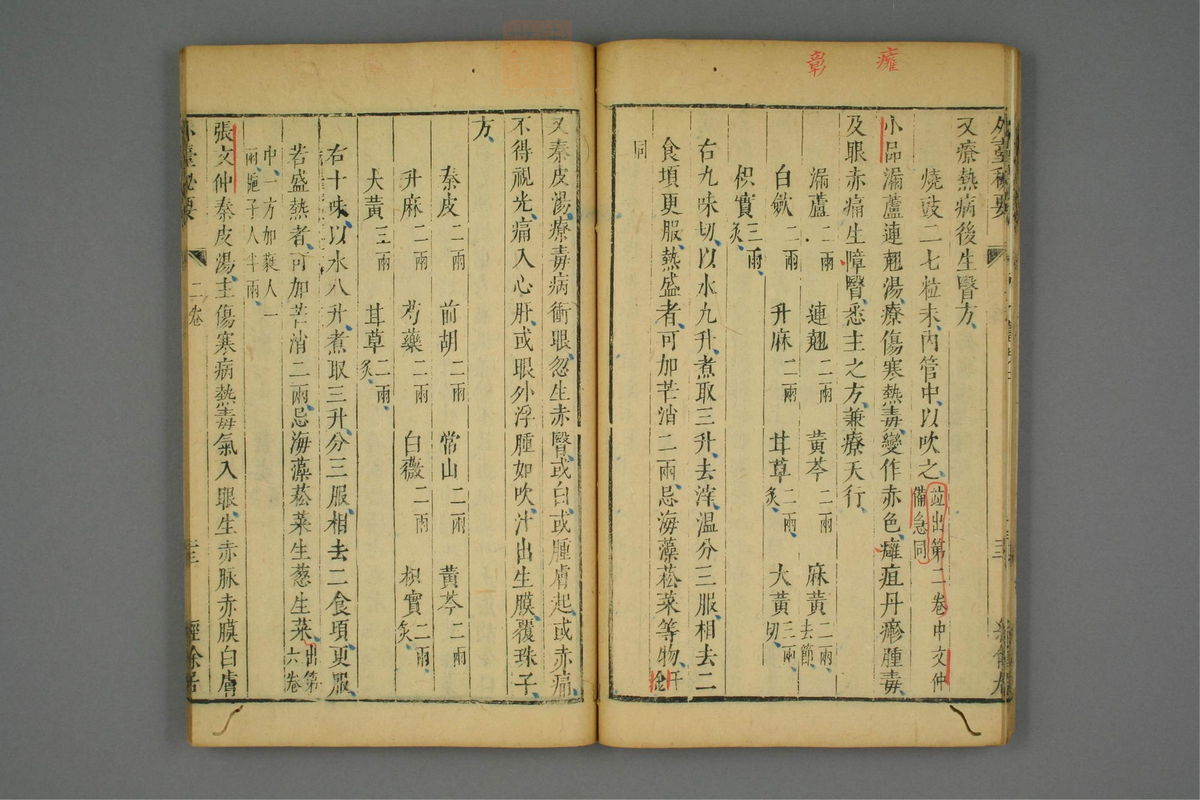 癰
彰
外臺秘要
又療熱病後生瞖方
燒豉二七粒末、內管中、以吹之、竝出第二卷中文仲
備急同
小品漏蘆連翹湯療傷寒熱毒、變作赤色癰疽丹瘮腫毒、
及眼赤痛生障瞖、悉主之方、兼療天行、
漏蘆二兩、 連翹二兩 黃芩二兩 麻黃二兩、去節
白蘞二兩 升麻二兩 甘草二兩、炙、 大黃三兩、切、
枳實三兩、炙、
右九味切、以水九升、煮取三升、去滓溫分三服、相去二
食頃更服、熱盛者可加芒消二兩、忌海藻菘菜等物、千金
同
又秦皮湯療毒病衝眼、忽生赤瞖、或白或腫膚起或赤痛、
不得視光、痛入心肝、或眼外浮腫如吹、汁出生膜、覆珠子、
方、
秦皮二兩 前胡二兩 常山二兩 黃芩二兩
升麻二兩 芍藥二兩 白薇二兩 枳實二兩、炙、
大黃三兩 甘草二兩、炙、
右十味、以水八升煮取三升、分三服、相去二食頃、更服、
若盛熱者、可加芒消二兩、忌海藻菘菜生葱生菜、出第
六卷
中、一方加蕤人一
兩、梔子人半兩、
張文仲秦皮湯、主傷寒病熱毒氣入眼生赤脉赤膜白膚
外臺秘要
二卷
經餘居